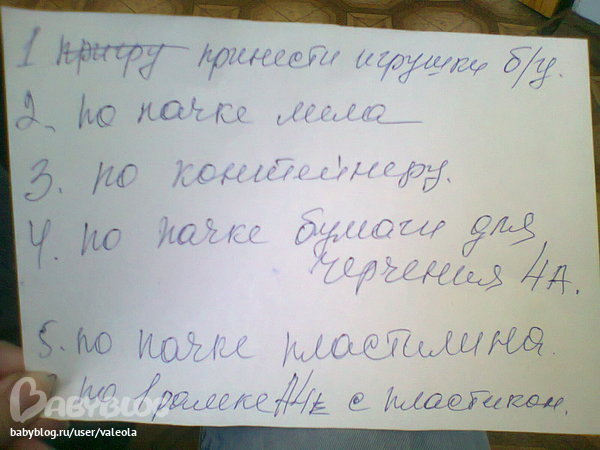 1 пригру принести игрушки б/у.
2. по пачке мела
3. по контейнеру.
4. по пачке бумаги для
черчения 4А.
5. по пачке пластилина.
по 1 рамке А4 с пластиком.
BABYBLOG
babyblog.ru/user/valeola